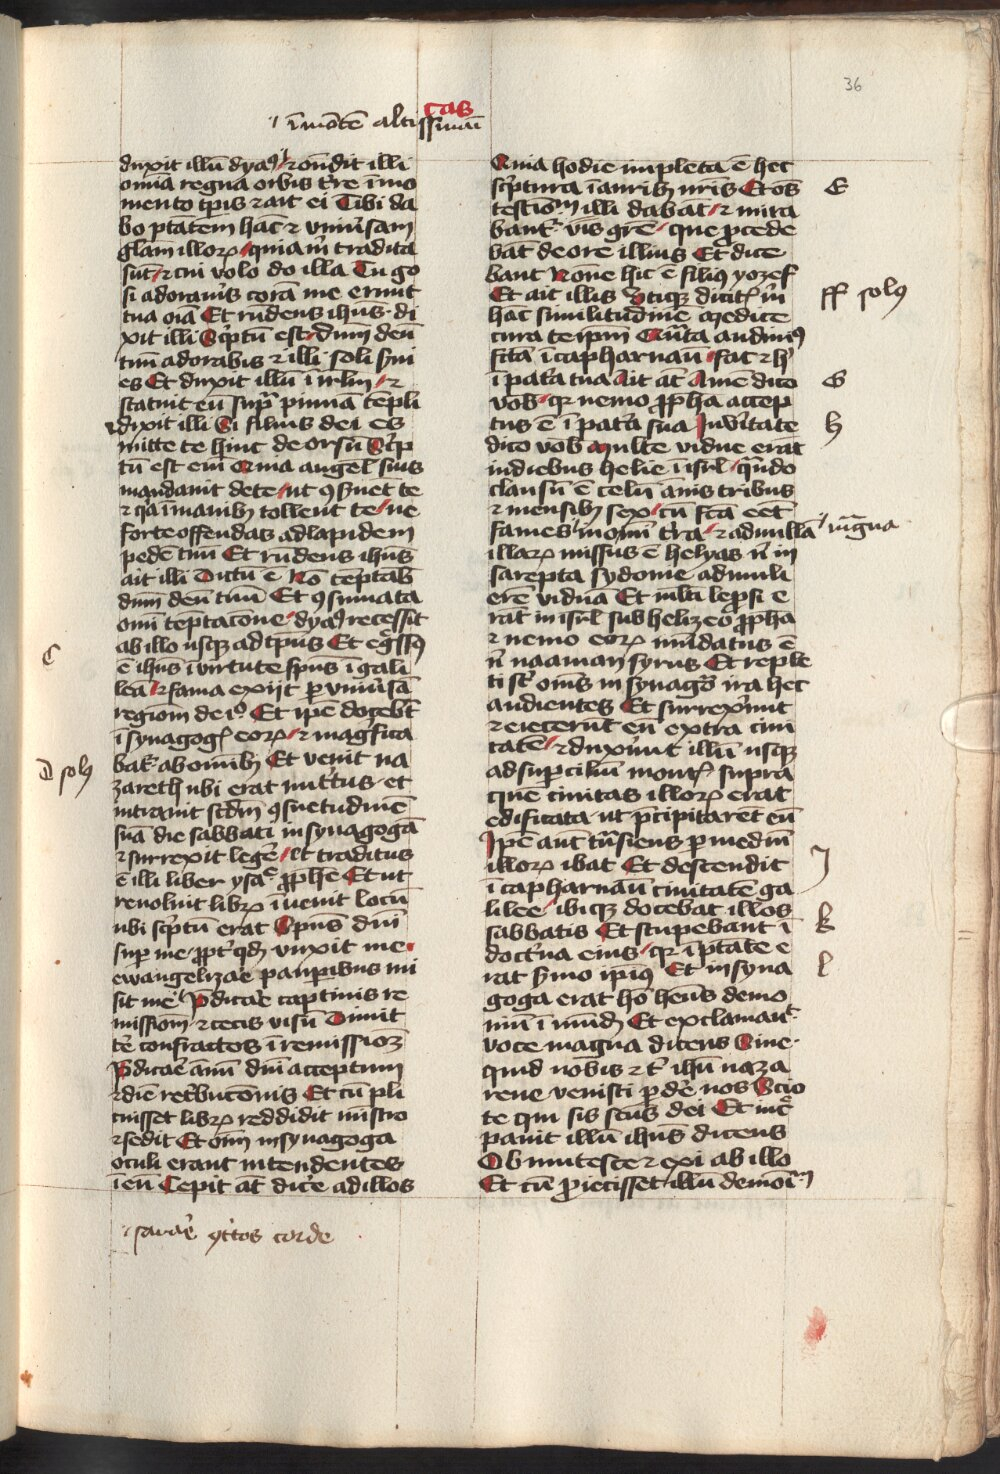 36
cas
i̅ mo̅te̅ altissimu̅
duxit illu̅ dya9 ⁊ on̅dit illi
omia̅ regna orbis tr̅e i̅ mo
mento tp̅is ⁊ ait ei Tibi da
bo pt̅ate̅m hac̅ ⁊ vniu̅sam
glam̅ illorꝝ quia m̅ tradita
sut̅ ⁊ cui volo do illa Tu g̊o
si adorau̅is cora̅ me erunt
tua oi̅a Et rn̅dens ihus di
xit illi Sc̅ptu̅ est dnm̅ deu̅
tuu̅ adorabis ⁊ illi soli s̅ui
es Et duxit illu̅ i̅ irlm̅ ⁊
statuit eu̅ sup̅ pinna̅ te̅pli
⁊ dixit illi Si filius dei es
mitte te hinc deorsu̅ Sc̅p
tu̅ est eni̅ Quia angel̅ suis
mandauit de te ut 9s̅uet̅ te
⁊ q̅a i̅ manib3 tollent te ne
forte offendas ad lapidem
pede̅ tuu̅ Et rn̅dens ihu̅s
ait illi Dictu̅ e̅ No̅ te̅ptab̅
dnm̅ deu̅ tuu̅ Et 9su̅mata
omi̅ te̅ptac̅one dya9 recessit
ab illo usq3 ad tp̅us Et eg̅ss9
e̅ ihu̅s i̅ virtute sp̅us i̅ gali
lea̅ ⁊ fama exijt p̱ vniu̅sa̅
regiom̅ de i̊o Et ip̅e docebt̅
i̅ synagog̅ eorꝝ ⁊ mag̅fica
bat̅ ab omib3 Et venit na
zareth ubi erat nut̅tus et
intrauit scd̅m 9suetudine̅
sua̅ die sabbati in synagoga̅
⁊ surrexit leg̅e Et traditus
e̅ illi liber ysa̅e ꝓphe̅ Et ut
reuoluit librꝝ i̅uenit locu̅
ubi sc̅ptu̅ erat Sp̅us dni̅
sup̱ me ꝓpt̅ qd̅ vnxit me
ewangelizar̅e paup̱ibus mi
sit me p̅dicar̅e captiuis re
missiom̅ ⁊ cecis visu̅ Dimit
te̅ confractos i̅ remissiom̅
P̅dicar̅e annu̅ dni̅ acceptum
⁊ die̅ ret̅buc̅onis Et cu̅ pli
cuisset librꝝ reddidit mi̅stro
⁊ sedit Et om̅ in synagoga
oculi erant intendentes
i̅ eu̅ Cepit at̅ dic̅e ad illos
i sanar̅e 9t̅tos corde
C
D sol9
Quia hodie impleta e̅ hec
sc̅ptura i̅ aurib3 nr̅is Et os̅
testiom̅ illi dabat̅ ⁊ mira
bant̅ vi̅s gre̅ que ꝓcede
bat̅ de ore illius Et dice
bant No̅ne hic e̅ filius yozef
Et ait illis Vtiq3 dicit̅ m̅
hac̅ similitudine̅ Medice
cura teip̅m Qu̅ta audiui9
fct̅a i̅ capharnau̅ fac ⁊ h̅
i̅ pat̅a tua Ait at̅ Ame̅ dico
vob̅ qr̅ nemo ꝓpha accep
tus e̅ i̅ pat̅a sua In v̅itate
dico vob̅ Multe vidue erat̅
in diebus helie i̅ isrl̅ qn̅do
clausu̅ e̅ celu̅ an̅is tribus
⁊ mensib3 sex cu̅ fct̅a eet̅
fames i̅ omni̅ tr̅a ⁊ ad nulla̅
magna
illarꝝ missus e̅ helyas n̅ in
sarepta sydonie ad muli
ere̅ vidua̅ Et mlt̅i lep̱si e
rat̅ in isrl̅ sub helizeo ꝓpha
⁊ nemo eorꝝ mu̅datus e̅
n̅ naaman syrus Et reple
ti st̅ om̅s in synagog̅ ira hec
audientes Et surrexu̅nt
⁊ eiecerut̅ eu̅ extra ciui
tate̅ ⁊ duxu̅nt illu̅ usq3
ad sup̱cilium mont̅ supra
que̅ ciuitas illorꝝ erat
edificata ut p̅cipitaret̅ eu̅
Ip̅e aut̅ tn̅siens p̱ mediu̅
illorꝝ ibat Et descendit
i̅ capharnau̅ ciuitate̅ ga
lilee ibiq3 docebat illos
sabbatis Et stupebant i̅
doct̅na eius qr̅ i̅ pt̅ate e
rat s̅mo ip̅ius Et in syna
goga erat ho̅ hn̅s demo
niu̅ i̅mu̅d3 Et exclamaut̅
voce magna dicens Sine
quid nobis ⁊ t̅ ihu̅ naza
rene venisti p̱de̅ nos Scio
te qui sis scus̅ dei Et inc̅
pauit illu̅ ihu̅s dicens
Obmutesce ⁊ exi ab illo
Et cu̅ ꝓiecisset illu̅ demoi̅m
E
ff sol9
G
h
J
k
l